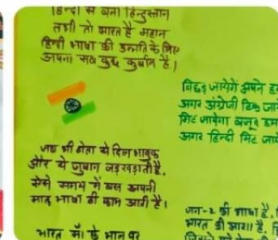 हिन्दी से बना हिन्दुस्तान
तभी तो भारत है महान
हिन्दी भाषा की उन्नति के लिए
अपना सब कुछ कुर्बान है।
जब भी होता ये दिल भावुक
और ये जुबान लड़खड़ाती है,
ऐसे समय में बस अपनी
मातृ भाषा ही काम आती है।
भारत माँ के भाल पर
बिछड़ जायेंगे अपने
अगर अंग्रेजी टिक जा
मिट जायेगा वजूद हम
अगर हिन्दी मिट जा
जन-२ की भाषा है,
भारत की आशा है,